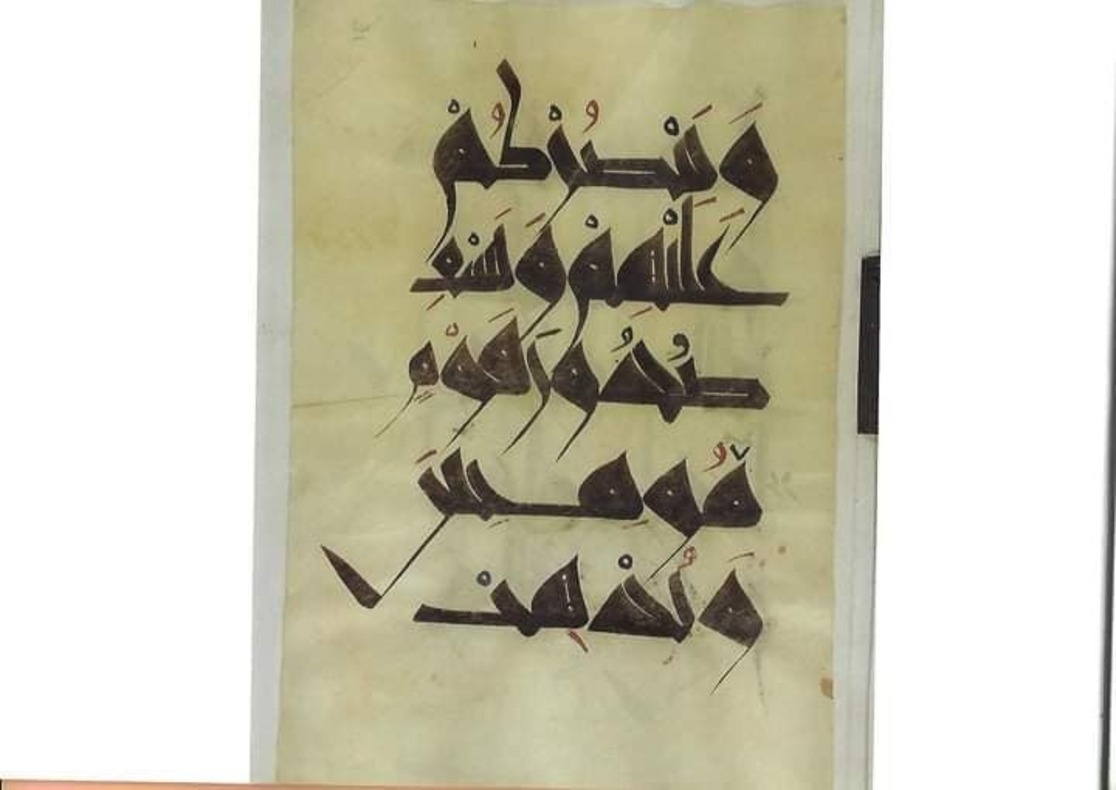 وَيَنْصُرْكُمْ
عَلَيْهِمْ وَيَشْفِ
صُدُورَ قَوْمٍ
مُّومِنِينَ
وَيُذْهِبْ